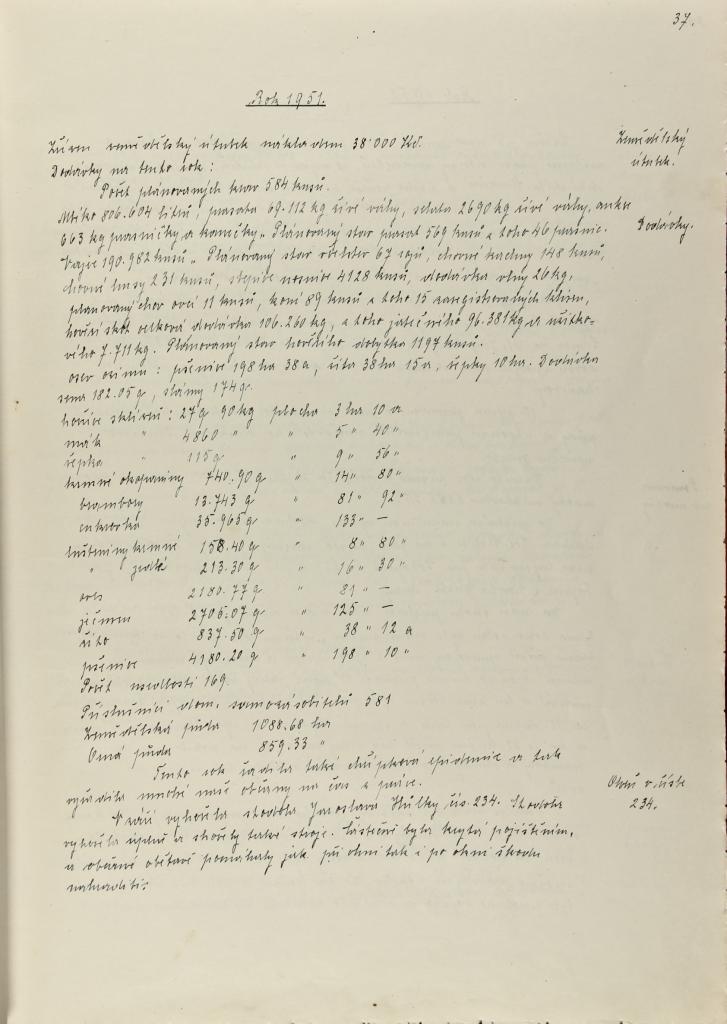 37.
Rok 1951.
Zřízen zemědělský útulek nákladem 38.000 Kčs.
Zemědělský
útulek.
Dodávky na tento rok:
Počet plánovaných krav 584 kusů.
Mléko 806.604 litrů, prasata 69.112 kg živé váhy, selata 2690 kg živé váhy,
663 kg prasničky a kanečky. Plánovaný stav prasat 569 kusů z toho 46 prasnic.
Dodávky.
Vajec 190.982 kusů. Plánovaný stav včelstev 67 rojů, chovné kachny 148 kusů,
chovné husy 231 kusů, slepice nosnice 4128 kusů, dodávka vlny 26 kg,
plánovaný chov ovcí 11 kusů, koní 89 kusů z toho 15 zaregistrovaných klisen,
hovězí skot celková dodávka 106.260 kg, z toho jatečného 96.381 kg a užitko-
vého 7.711 kg. Plánovaný stav hovězího dobytka 1197 kusů.
osev ozimů: pšenice 198 ha 38 a, žita 38 ha 15 a, řepky 10 ha. Dodávka
sena 182.05 q, slámy 174 q.
hořčice sklizeň: 27 q 90 kg plocha 3 ha 10 a
mák " 4860 " " 5 " 40 "
řepka " 115 q " 9 " 56 "
krmné okopaniny 740.90 q " 14 " 80 "
brambory 13.743 q " 81 " 92 "
cukrovka 35.965 q " 133 " —
luštěniny krmné 158.40 q " 8 " 80 "
" jedlé 213.30 q " 16 " 30 "
oves 2180.77 q " 81 " —
ječmen 2705.07 q " 125 " —
žito 837.50 q " 38 " 12 a
pšenice 4180.20 q " 198 " 10 "
Počet usedlostí 169.
Příslušníci dom. samozásobitelů 581
Zemědělská půda 1088.68 ha
Orná půda 859.33 "
Tento rok řádila také chřipková epidemie a tak
vyřadila mnohé naše občany na čas z práce.
V září vyhořela stodola Jaroslava Hůlky čís. 234. Stodola
Oheň v čísle
234.
vyhořela úplně a shořely také stroje. Částečně byla krytá pojištěním,
a občané obětavě pomáhaly jak při ohni tak i po ohni škodu
nahraditi.